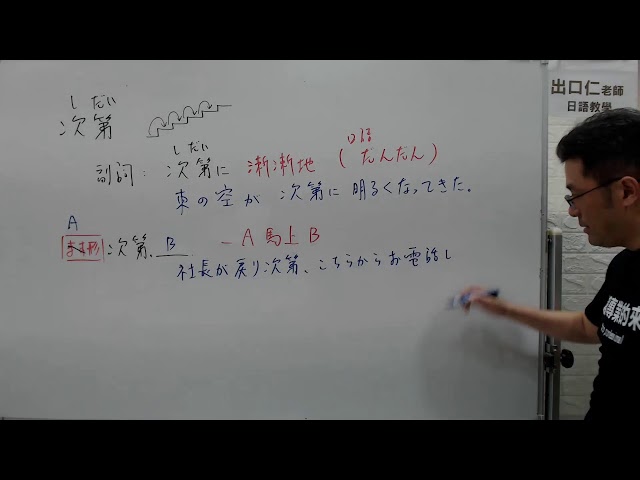 しだい
次第
しだい
副詞：次第に 漸漸地（だんだん）
口語
東の空が 次第に 明るくなってきた.
A
ます形：次第、B －A 馬上 B
社長が戻り次第、こちらからお電話し
出口仁老師
日語教學
專業的來